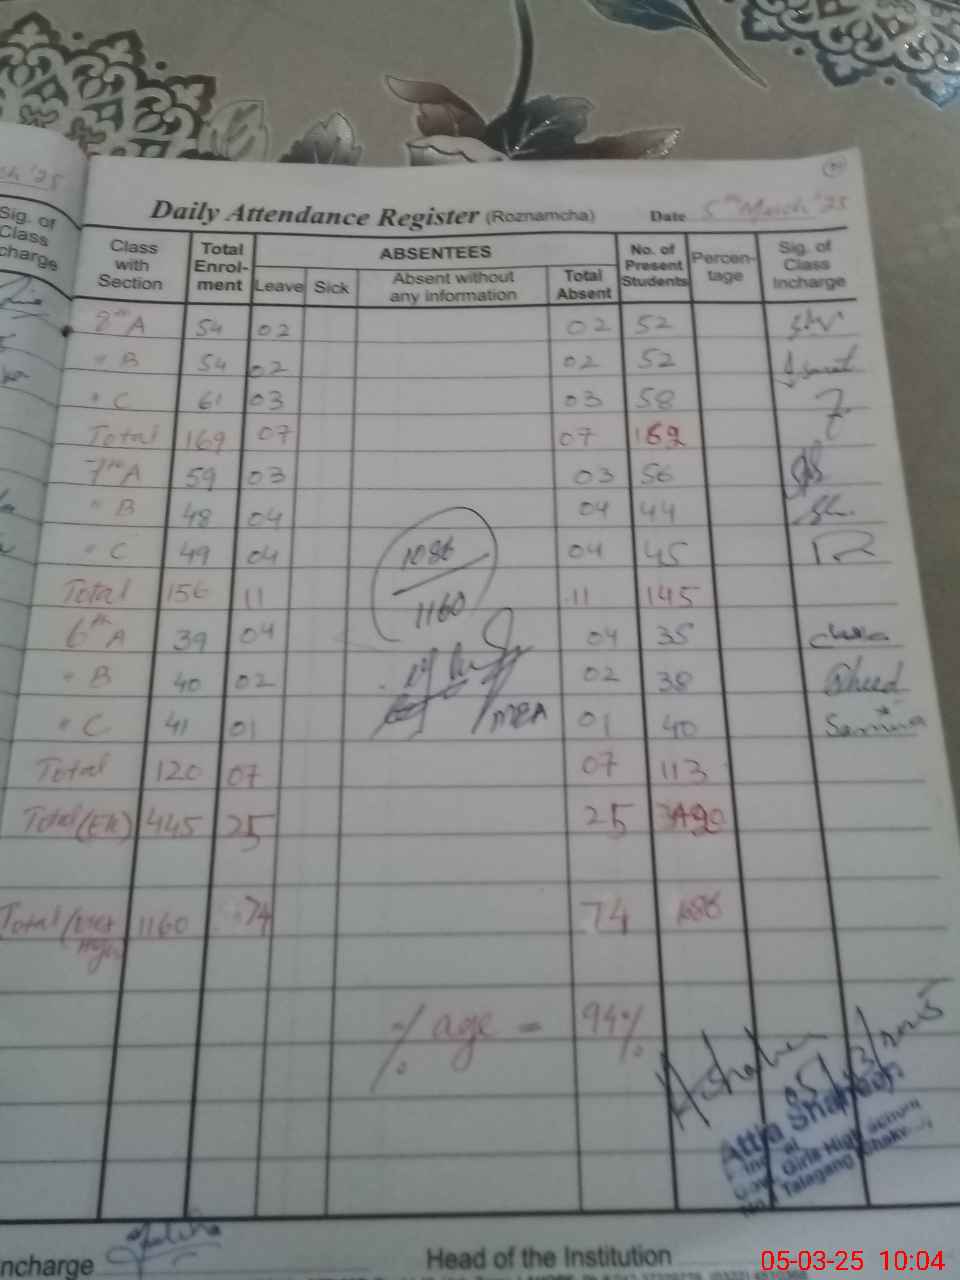 Daily Attendance Register (Roznamcha) Date 5th March '25
Class with Section Total Enrol-ment ABSENTEES No. of Present Students Percen-tage Sig. of Class Incharge
Leave Sick Absent without any information Total Absent
8th A 54 02 02 52
" B 54 02 02 52
" C 61 03 03 58
Total 169 07 07 162
7th A 59 03 03 56
" B 48 04 04 44
" C 49 04 04 45
1086
1160
Total 156 11 11 145
6th A 39 04 04 35
" B 40 02 02 38
" C 41 01 01 40 Samina
MEA
Total 120 07 07 113
Total (Ele) 445 25 25
Total 1160 74 74 1086
% age = 94%
Attia Shaheen
Girls High School
Talagang
ncharge Head of the Institution
05-03-25 10:04
Sig. of
Class
charge